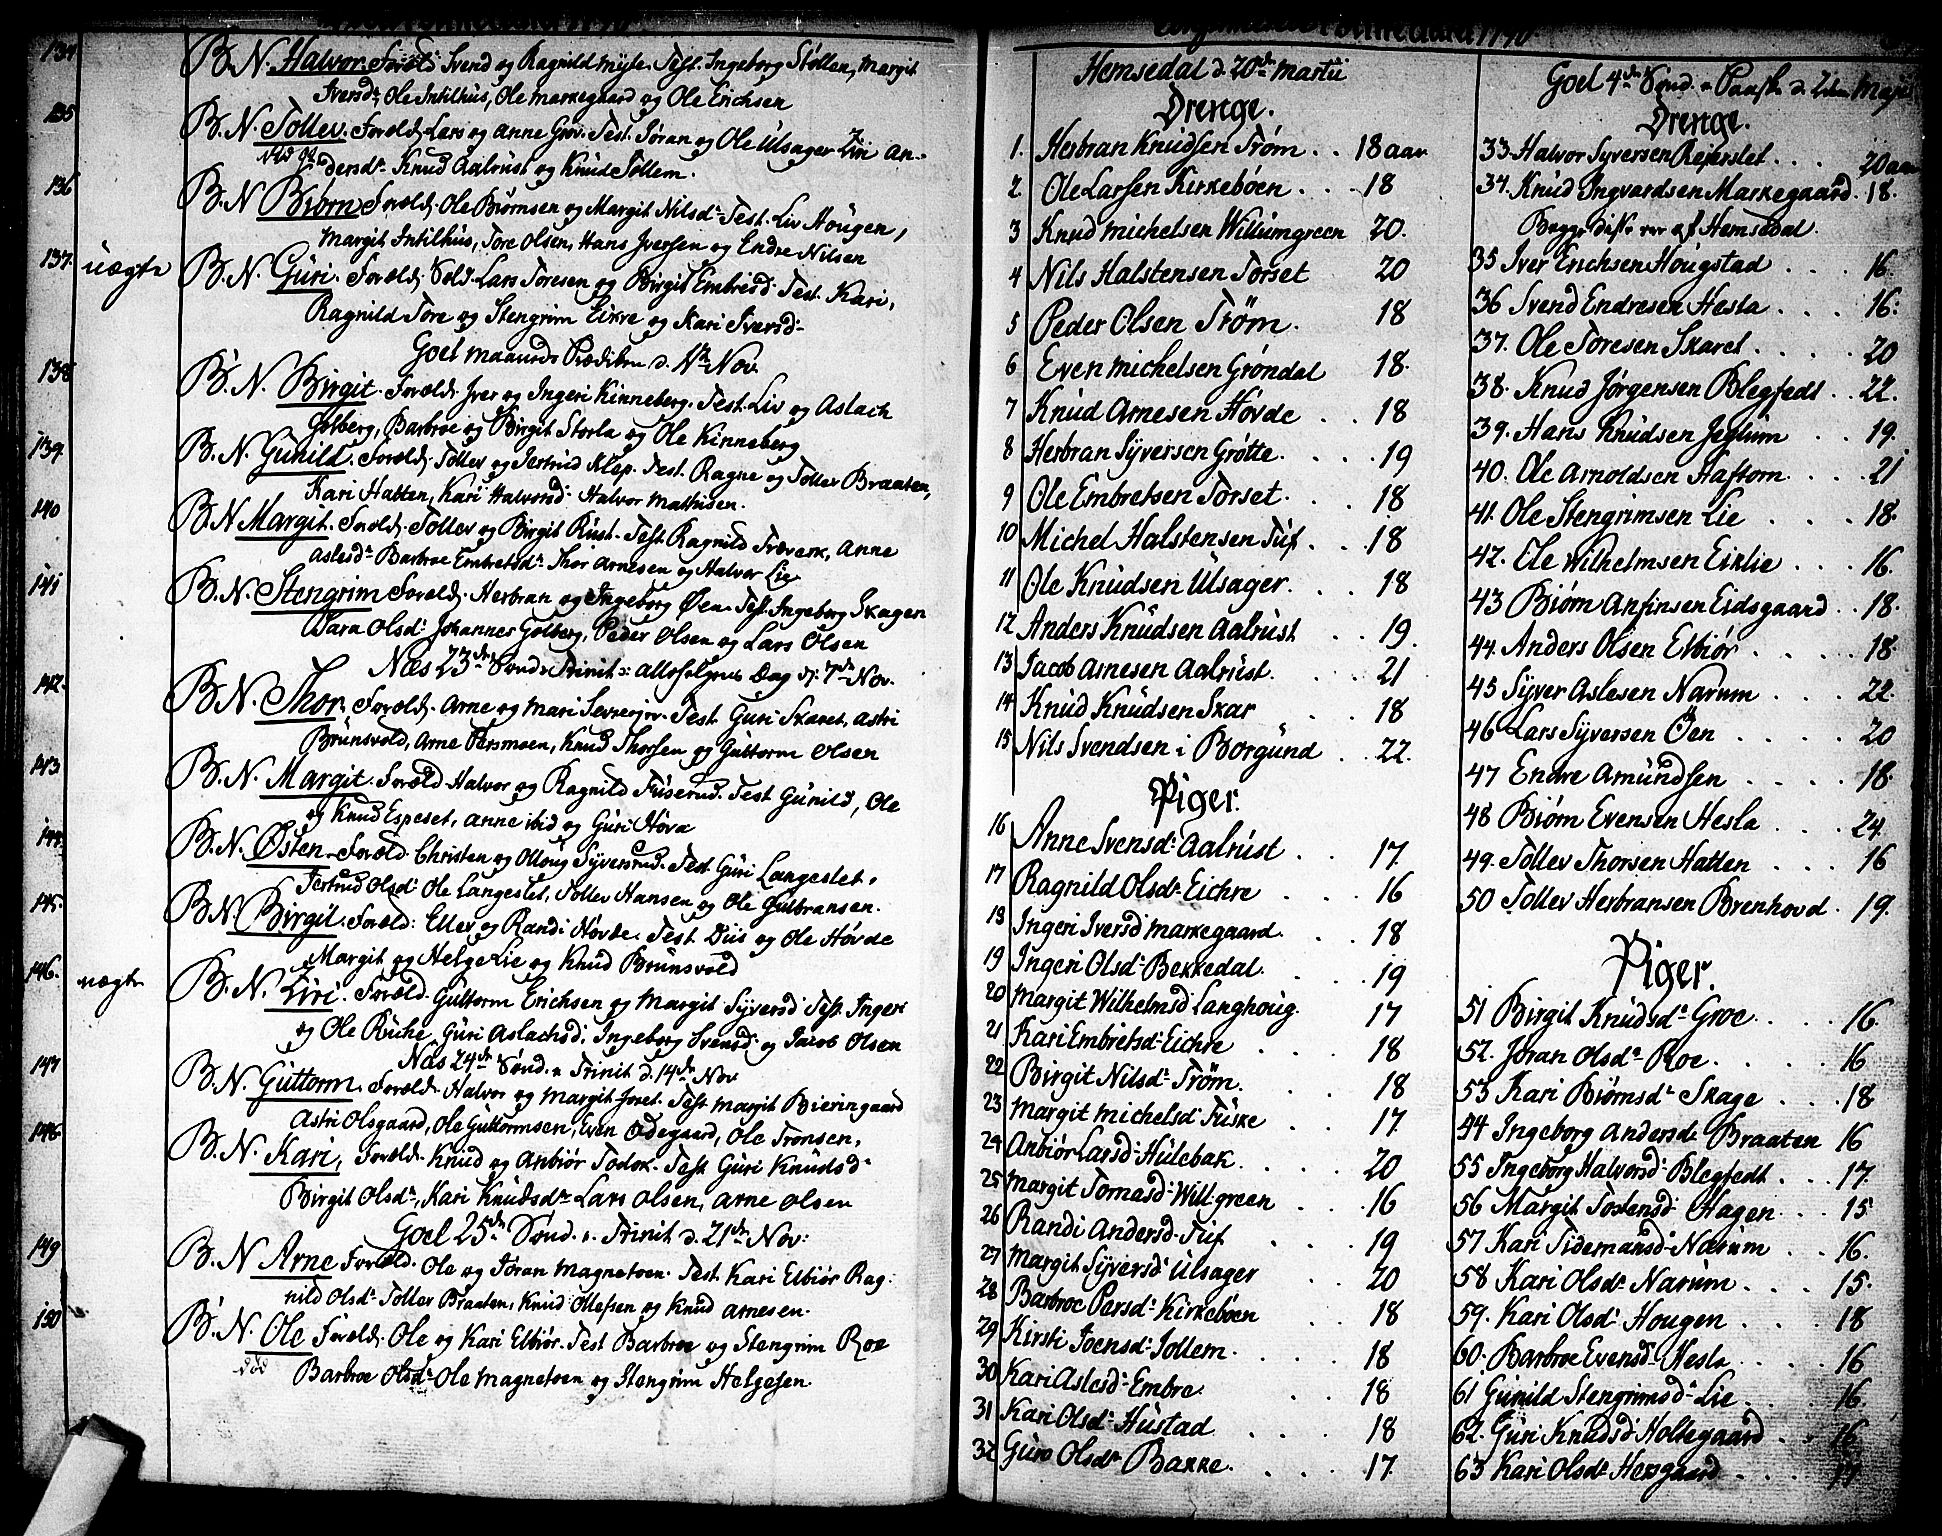 134 B. N. Halvor. Foræld. Svend og Ragnild myte. Test. Ingeborg Støllen, Margit
Iversd. Ole Intilhus, Ole markegaard og Ole Erichsen
135 B. N. Tollev. Foræld. Lars og Anne Grov. Test. Jøran og Ole Ulsager Liv An-
dersd. Knud Aalrust og Knud Tollem.
136 B. N Biørn Foræld. Ole Biørnsen og Margit Nilsd. Test. Liv Hougen,
Margit Intilhus, Tore Olsen, Hans Iversen og Endre Nilsen
137. uægte B. N. Guri. Foræld. Sold. Lars Toresen og Birgit Embresd. Test. Kari,
Ragnild Tore og Stengrim Eikre og Kari Iversd.
Goel maaneds Prædiken d. Nov.
138 B. N. Birgit. Foræld. Iver og Ingeri Kinneberg. Test. Liv og Aslach
Golberg, Barbroe og Birgit Storla og Ole Kinneberg
139. B. N. Gunild. Foræld. Tollev og Jertrud Klep. Test. Ragne og Tollev Braaten,
Kari Hatten, Kari Halvorsd. Halvor Mathisen.
140 B N Margit. Foræld. Tollev og Birgit Rust. Test. Ragnild Træverk, Anne
Aslesd. Barbroe Embretsd. Thor Arnesen og Halvor Lie
141 B. N. Stengrim Foræld. Herbran og Ingeborg Øen. Test. Ingeborg Skagen
Olsd. Johannes Golberg, Peder Olsen og Lars Olsen
Næs 23de Sønd. Trinit: allehelgens Dag d. 7de Nov.
142. B N. Thor. Foræld. Arne og Mari. Test. Guri Skaret, Astri
Brunsvold, Arne Persmoen, Knud Thorsen og Guttorm Olsen
143 B. N. Margit. Foræld Halvor og Ragnild Fuserud. Test Gunild, Ole
og Knud Espeset, Anne ibid og Guri Høva
144. B. N. Østen. Foræld. Christen og Olloug Syversrud. Test. Guri Langeslet,
Jertrud Olsd. Ole Langeslet, Tollev Hansen og Ole Gulbransen.
145. B N. Birgit. Foræld: Ellev og Randi Høvde. Test. Diis og Ole Høvde
Margit og Helge Lie og Knud Brunsvold
146. uægte B. N. Liri. Foræld. Guttorm Erichsen og Margit Syversd Test. Inger
og Ole Ruche, Guri Aslachsd. Ingeborg Svensd. og Jacob Olsen
Næs 24de Sønd. Trinit d. 14de Nov
147 B. N. Guttorm. Foræld. Halvor og Margit Joret. Test. Margit Bieringaard
Astri Olsgaard, Ole Guttormsen, Even Ødegaard, Ole Tronsen,
148 B. N. Kari, Foræld. Knud og Anbiør Todok. Test. Guri Knudsd.
Birgit Olsd., Kari Knudsd. Lars Olsen, Arne Olsen
Goel 25de Sønd. Trinit d. 21de Nov:
149 B. N Arne Foræld. Ole og Jøran Magnetoen. Test. Kari Elbiør Rag:
nild Olsd. Tollev Braaten, Knud Ollefsen og Knud Arnesen.
150 B. N. Ole Foræld. Ole og Kari Elbiør. Test Barbroe og Stengrim Roe
død Barbroe Olsd. Ole Magnetoen og Stengrim Helgesen
Hemsedal d. 20de Martii
Drenge.
1. Herbran Knudsen Trøm . . 18 aar
2 Ole Larsen Kirkebøen . . . 18
3 Knud Michelsen Williumgreen 20.
4 Nils Halstensen Torset 20
5 Peder Olsen Trøm. 18
6 Even Michelsen Grøndal 18.
7 Knud Arnesen Høvde . . 18
8 Herbran Syversen Grøtte. . . 19
9 Ole Embretsen Torset. . 18
10 Michel Halstensen Tuf . . 18
11 Ole Knudsen Ulsager. . . 18
12 Anders Knudsen Aalrust . . 19.
13 Jacob Arnesen Aalrust. . . 21
14 Knud Knudsen Skar . . 18
15 Nils Svendsen i Borgund . . 22.
Piger.
16 Anne Svensd. Aalrust . . 17.
17 Ragnild Olsd. Eichre . . 16
18 Ingeri Iversd Markegaard. . . 18
19 Ingeri Olsd. Bekkedal. . . 19
20 Margit Wilhelmsd Langhoug. 17
21 Kari Embretsd. Eichre . . 18
22 Birgit Nilsd. Trøm. . . 18
23 Margit Michelsd Fuske . . 17.
24 Anbiør Larsd. Hulebak. . . 20
25 Margit Tomasd. Will.green . . 16
26 Randi Andersd. Tuf . . 19
27 Margit Syversd Ulsager . 20
28 Barbroe Persd. Kirkebøen . 18
29 Kirsti Joensd. Jollem. . . 18
30 Kari Aslesd. Embre. . . 18
31 Kari Olsd. Hustad . . 18
32 Guro Olsd. Bakke. . . 17.
Goel 4de Sønd. Paaske d. 2den Maji
Drenge.
33 Halvor Syversen Rejerslet. . . 20 aar
34. Knud Ingvardsen Markegaard. 18.
Begge disse ere af Hemsedal
35 Iver Erichsen Hougstad . . . 16.
36 Svend Endresen Hesla . . . 16:
37. Ole Toresen Skaret . . . 20
38. Knud Jørgensen Blegfedt . . 22.
39. Hans Knudsen Jeglum . . 19.
40. Ole Arnoldsen Haftorn. . . 21
41. Ole Stengrimsen Lie . . . 18.
42. Ele Wilhelmsen Eiklie . . . 16.
43 Biørn Anfinsen Eidsgaard . . 18.
44. Anders Olsen Elbiør . . . 18.
45 Syver Aslesen Narum . . . 22.
46 Lars Syversen Øen . . . 20
47 Endre Amundsen . . . 18.
48 Biørn Evensen Hesla . . . 24.
49. Tollev Thorsen Hatten . . . 16
50 Tollev Herbransen Brenhovd . 19.
Piger.
51 Birgit Knudsd. Groe . . . 16.
52. Jøran Olsd. Roe . . . 16
53 Kari Biørnsd. Skage . . . 18
54 Ingeborg Andersd. Braaten 16
55 Ingeborg Halvorsd. Blegfedt. . 17.
56 Margit Tostensd. Hagen. . . 15
57 Kari Tidemansd. Narum . . 16.
58 Kari Olsd. Narum . . . 15.
59. Kari Olsd. Hougen . . . 18
60. Barbroe Evensd. Hesla . . . 16
61 Gunild Stengrimsd. Lie . . . 16.
62. Guri Knudsd. Holtegaard . . 16
63 Kari Olsd. Hesgaard . . . 17.